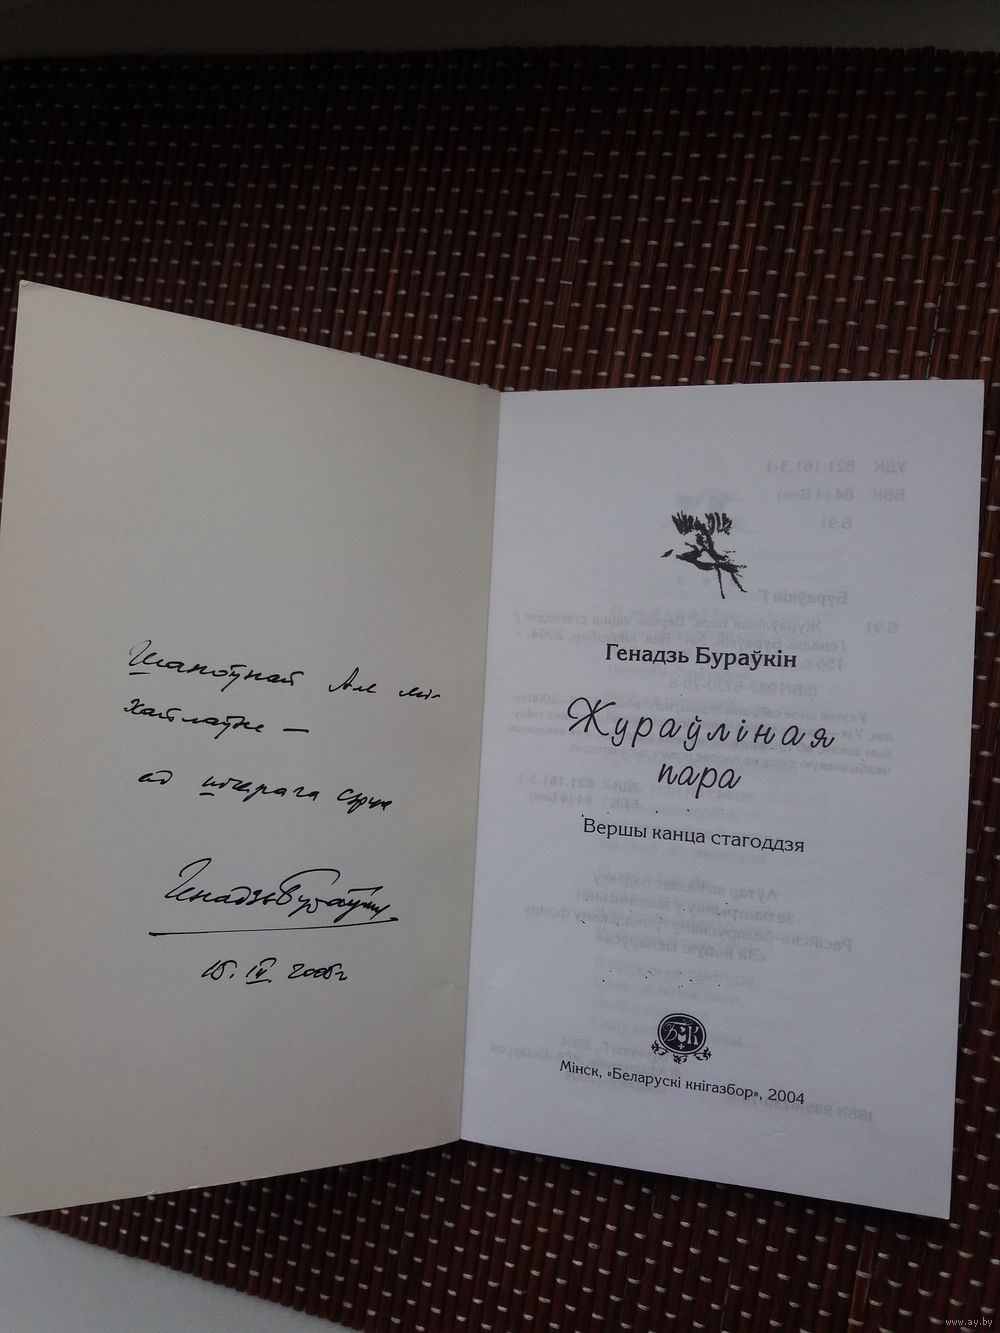 Шаноўнай Але Мі-
хайлаўне —
ад шчырага сэрца
Генадзь Бураўкін
15. IV. 2005г
Генадзь Бураўкін
Жураўліная
пара
Вершы канца стагоддзя
БК
Мінск, «Беларускі кнігазбор», 2004
www.ay.by